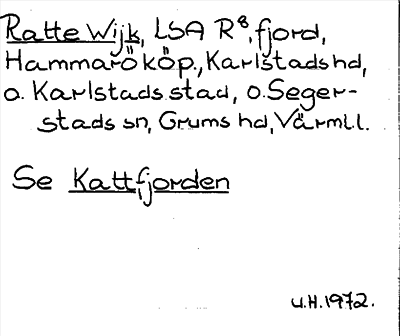 Ratte Wijk, LSA R⁸, fjord,
Hammarö köp., Karlstads hd,
o. Karlstads stad, o. Seger-
stads sn, Grums hd, Värml.
Se Kattfjorden
U.H. 1972.